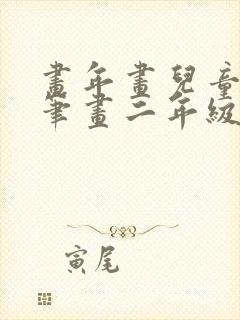 畫年畫兒童
筆畫二年級
寅尾